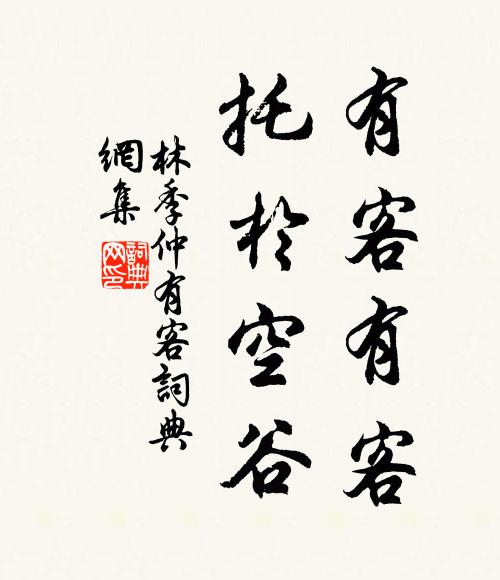 有客有客
托於空谷
林季仲有客詞典
網集
詞典網印